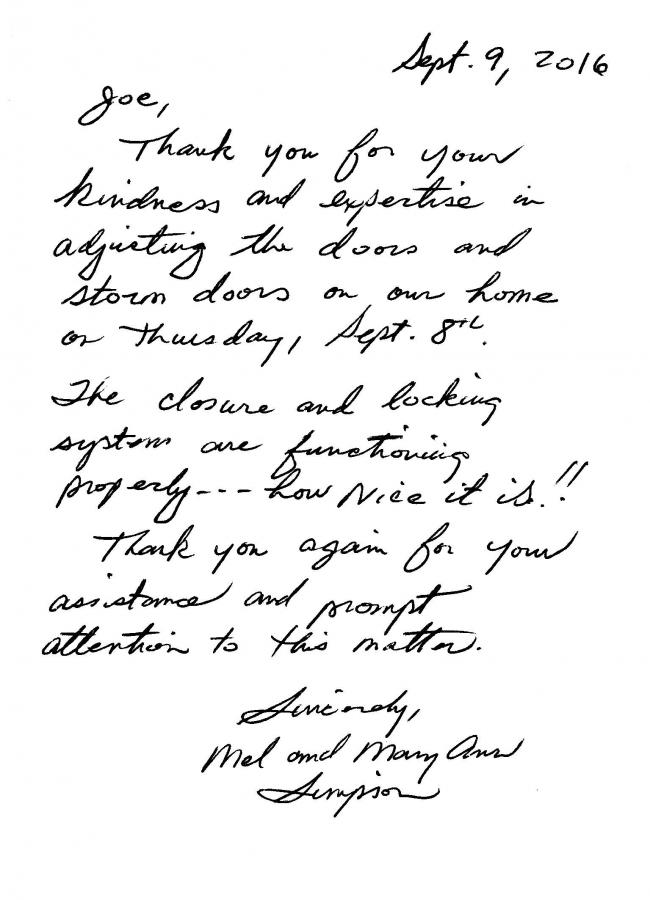 Sept. 9, 2016
Joe,
Thank you for your
kindness and expertise in
adjusting the doors and
storm doors on our home
on Thursday, Sept. 8th.
The closure and locking
system are functioning
properly--- how Nice it is!!
Thank you again for your
assistance and prompt
attention to this matter.
Sincerely,
Mel and Mary Ann
Simpson